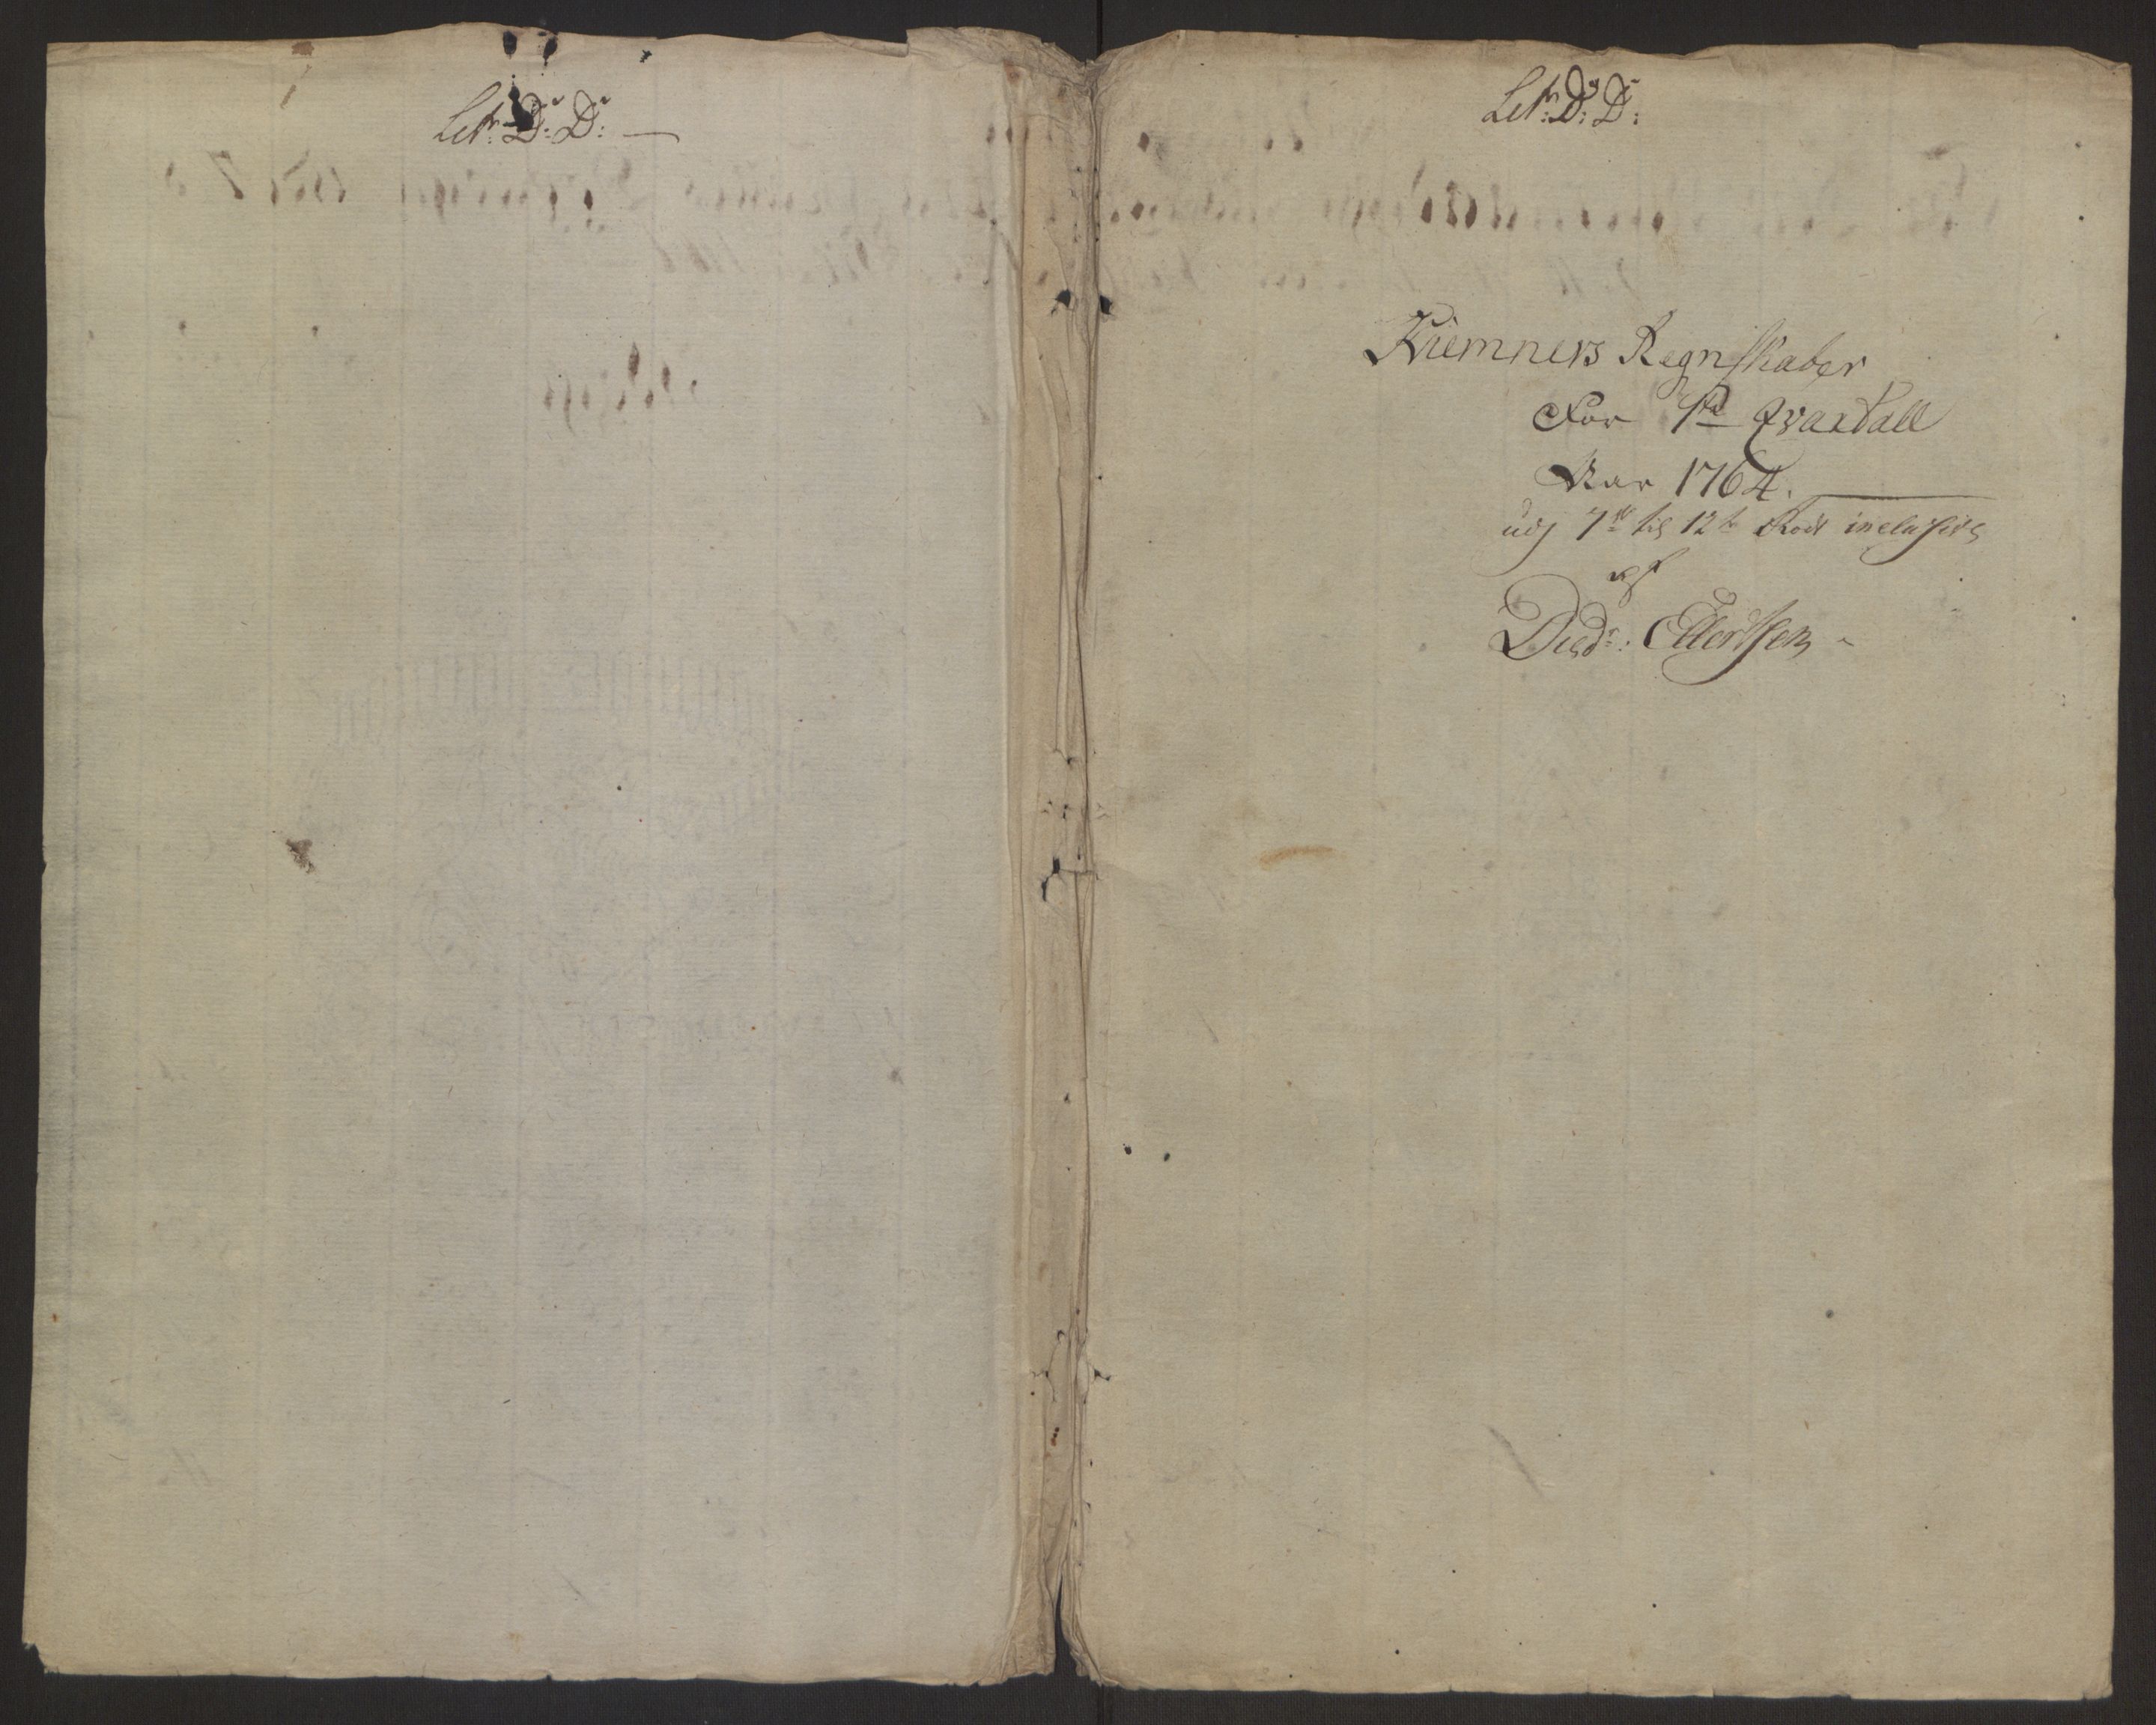 Letr: D: D:
Letr: D: D:
Kiemners Regnskaber
For 1ste Qvartall
Aar 1764.
7de til 12te Rode inclusive
af
Died: Ellertsen